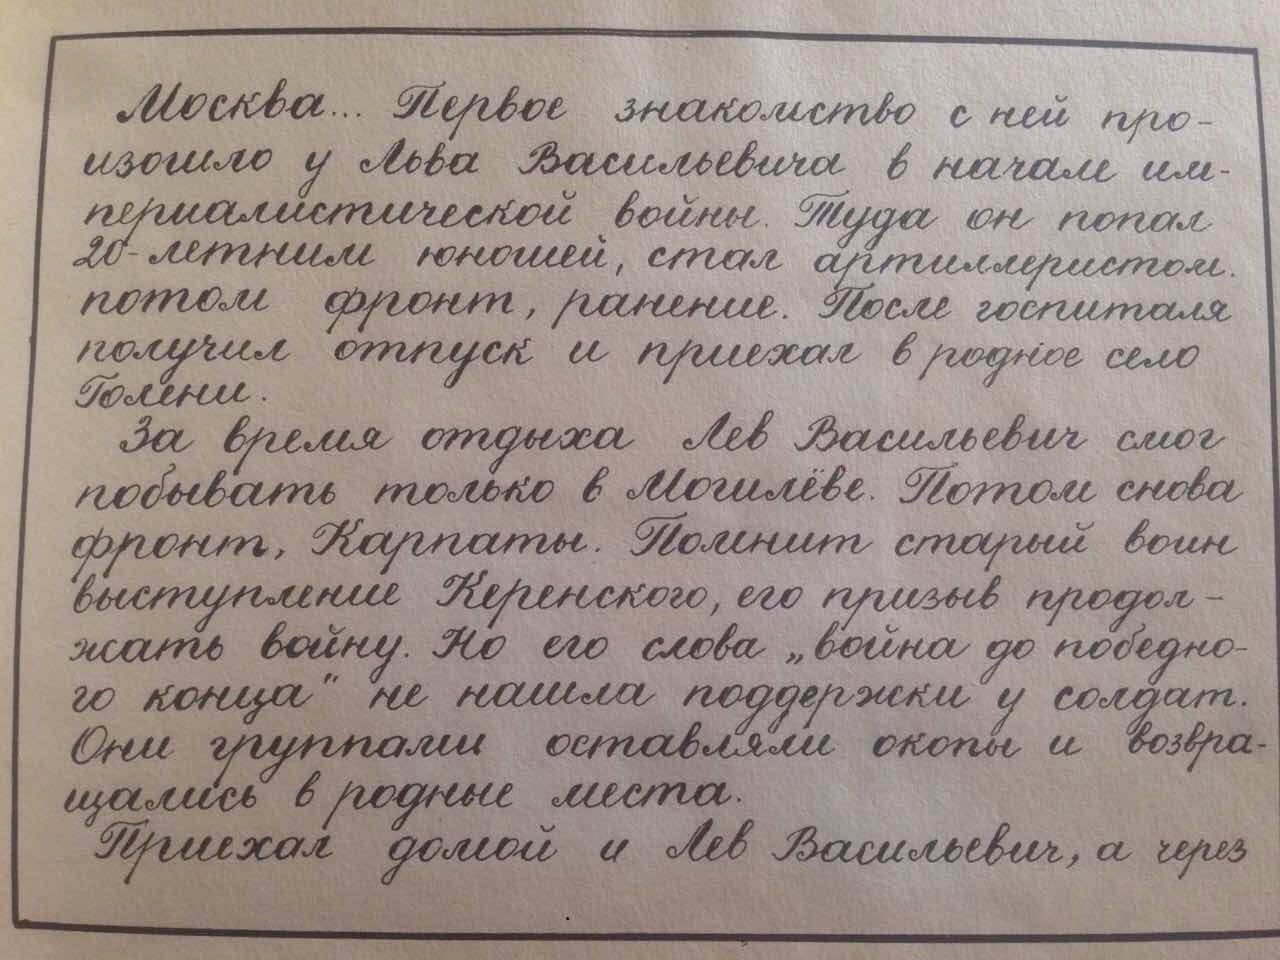 Москва... Первое знакомство с ней про-
изошло у Льва Васильевича в начале им-
периалистической войны. Туда он попал
20-летним юношей, стал артиллеристом.
потом фронт, ранение. После госпиталя
получил отпуск и приехал в родное село
Голени.
За время отдыха Лев Васильевич смог
побывать только в Могилёве. Потом снова
фронт, Карпаты. Помнит старый воин
выступление Керенского, его призыв продол-
жать войну. Но его слова „война до победно-
го конца" не нашла поддержки у солдат.
Они группами оставляли окопы и возвра-
щались в родные места.
Приехал домой и Лев Васильевич, а через